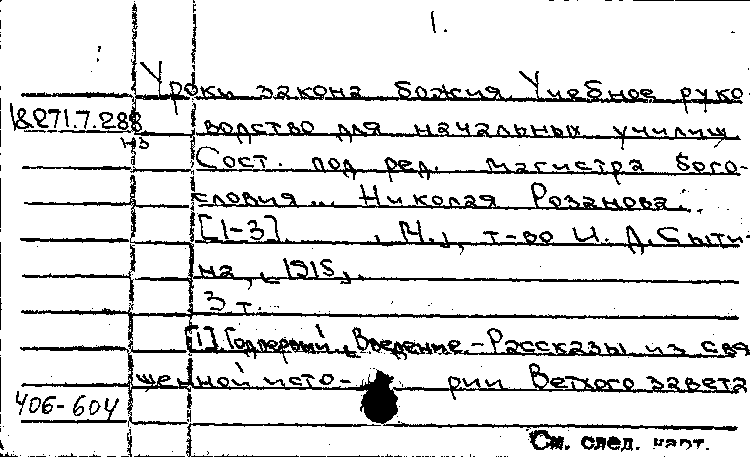 1.
Уроки закона божия. Учебное руко-
18271.7.288 водство для начальных училищ
Сост. под ред. магистра бого-
словия... Николая Розанова.
[1-3]. , М., т-во И. Д. Сыти-
на, [1915].
3 т.
[1] Год первый. Введение.-Рассказы из свя
щенной исто- рии Ветхого завета
406-604
См. след. карт.